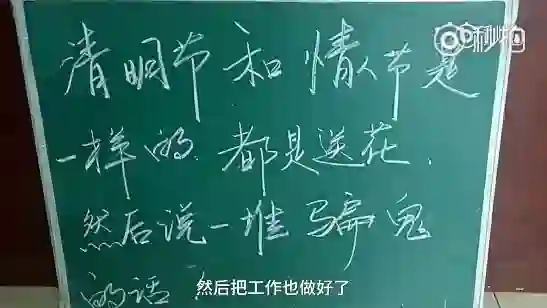 秒拍
清明节和情人节是
一样的.都是送花.
然后说一堆骗鬼
的话
然后把工作也做好了